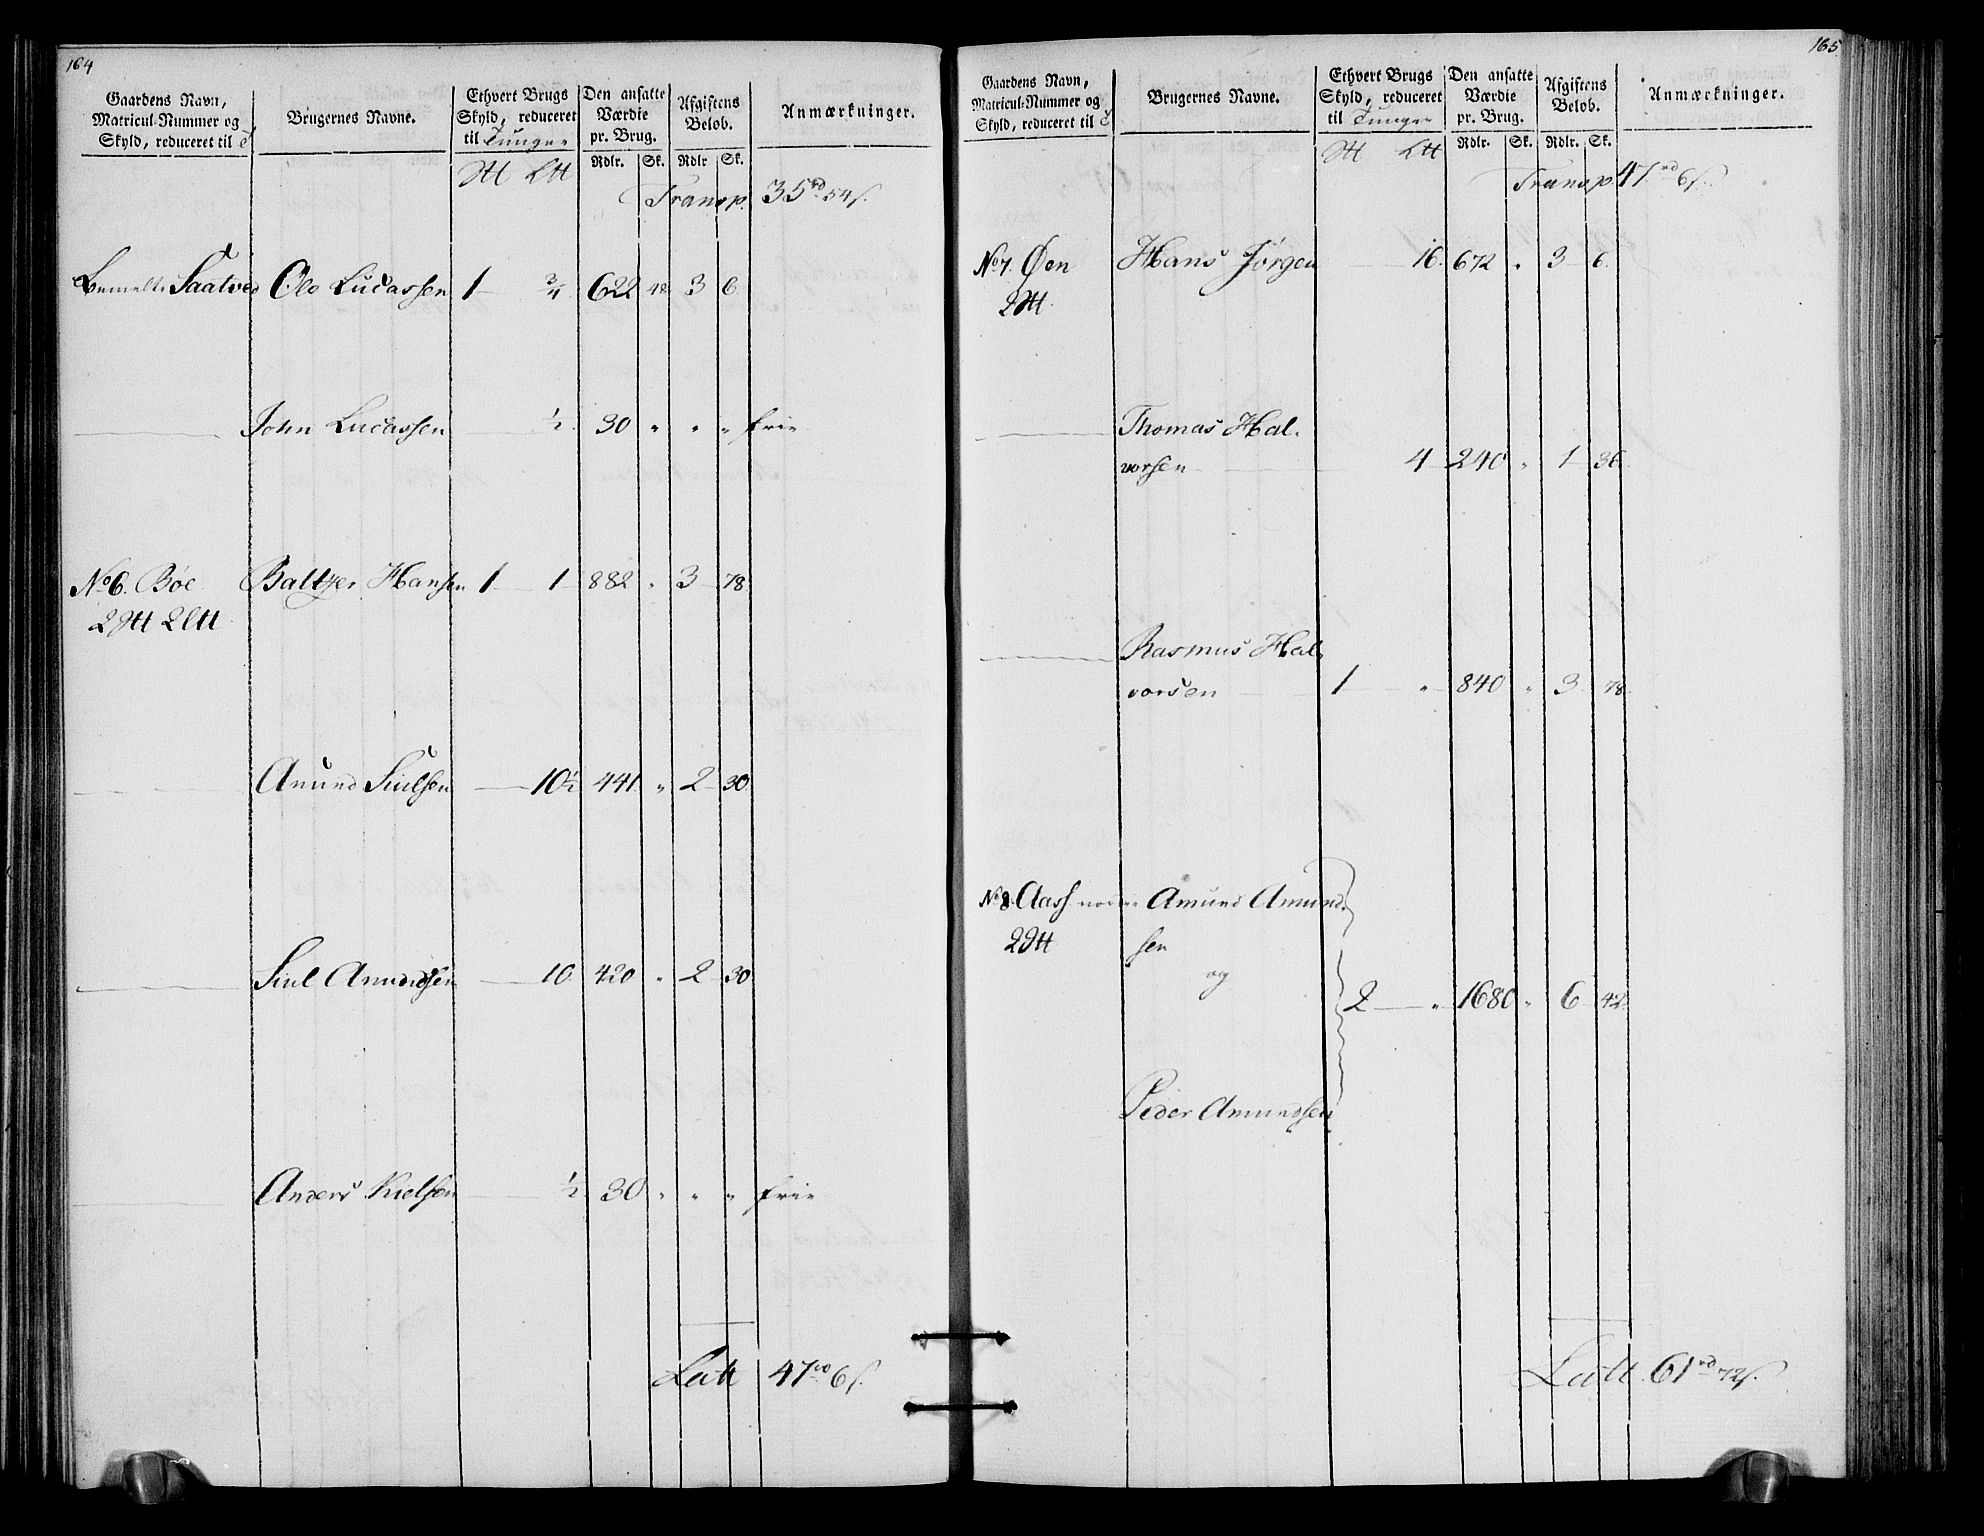 164
Gaardens Navn,
Matricul-Nummer og
Skyld, reduceret til T
Brugernes Navne.
Ethvert Brugs
Skyld, reduceret
til Tunge
Den ansatte
Værdie
pr. Brug.
Afgiftens
Beløb.
Anmærkninger.
Rdlr. Sk. Rdlr Sk.
Transp. 35 rd 54 s.
Bemelte Saatved Ole Lucassen 1 3/4 622 48 3 6
John Lucassen 1/2 30 " " " frie
No 6. Bøe Baltzer Hansen 1 1 882 " 3 78
2 H 2 LH
Amund Siulsen 10 1/2 441 " 2 30
Siul Amundsen 10 420 " 2 30
Anders Nielsen 1/2 30 " " " frie
Latt 47 rd 6 s.
165
Gaardens Navn,
Matricul-Nummer og
Skyld, reduceret til T
Brugernes Navne.
Ethvert Brugs
Skyld, reduceret
til Tunge
Den ansatte
Værdie
pr. Brug.
Afgiftens
Beløb.
Anmærkninger.
Rdlr. Sk. Rdlr. Sk.
Transp. 47 rd 6 s.
No 7. Øen Hans Jörgen 16 672 " 3 6
2 H
Thomas Hal-
vorsen 4 240 " 1 36
Rasmus Hal-
vorsen 1 " 840 " 3 78
No 8. Aass Amund Amund-
2 H sen
og
2 " 1680 " 6 42
Peder Amundsen
Latt 61 rd 72 s.